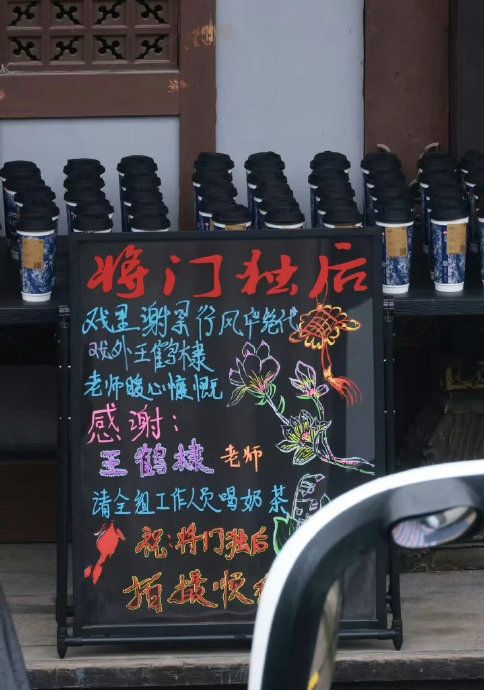 将门独后
戏里谢景行风华绝代
戏外王鹤棣
老师暖心慷慨
感谢:
王鹤棣 老师
请全组工作人员喝奶茶
祝:将门独后
拍摄